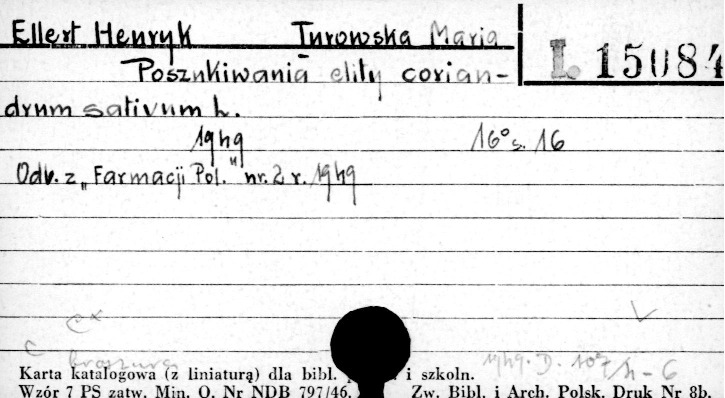 Ellert Henryk Turowska Maria
L 15084
Poszukiwania elity corian-
drum sativum L.
1949 16° s. 16
Odb. z „Farmacji Pol." nr. 2 r. 1949
broszura
1949. D. 107/h-6
Karta katalogowa (z liniaturą) dla bibl. i szkoln.
Wzór 7 PS zatw. Min. O. Nr NDB 797/46. Zw. Bibl. i Arch. Polsk. Druk Nr 8b.